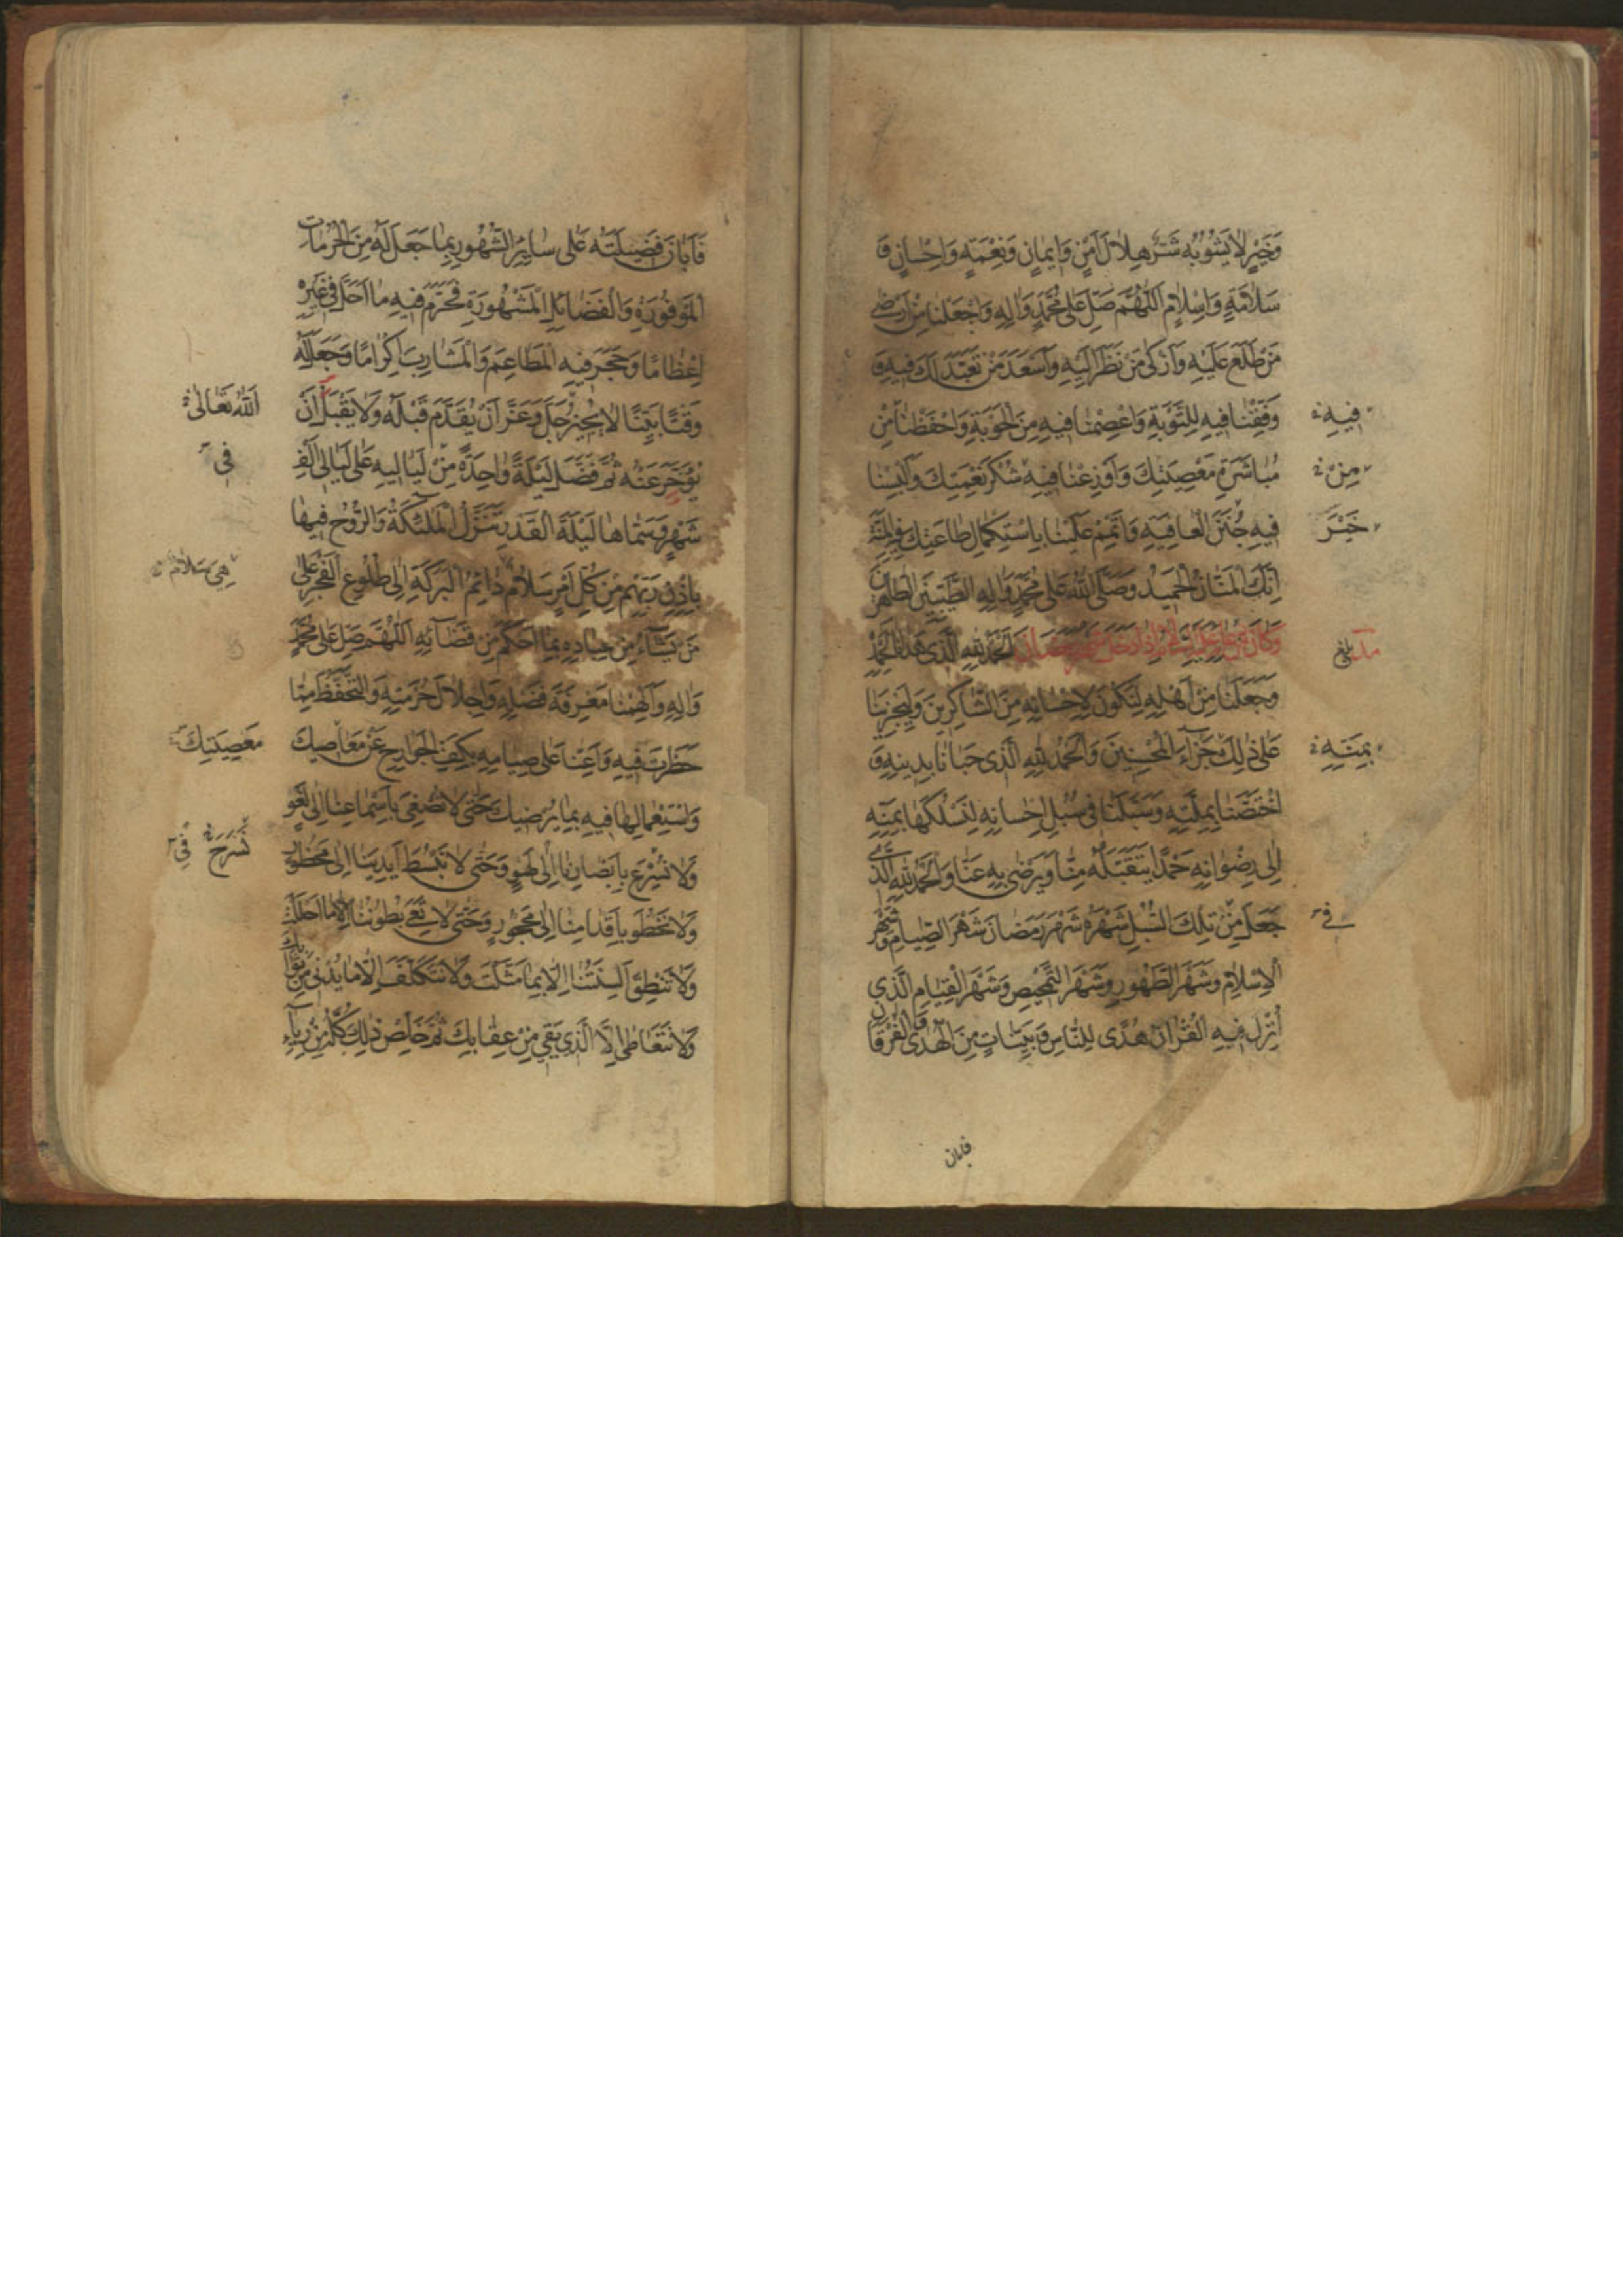 وَخَيْرٍ لا يَشُوبُهُ شَرٌّ هِلالَ اَمْنٍ وَايمانٍ وَنِعْمَةٍ وَاِحْسانٍ وَ
سَلامَةٍ وَاِسْلامٍ اَللّهُمَّ صَلِّ عَلى مُحَمَّدٍ وَالِهِ وَاجْعَلْنا مِنْ اَرْضى
مَنْ طَلَعَ عَلَيْهِ وَاَزْكى مَنْ نَظَرَ اِلَيْهِ وَاَسْعَدَ مَنْ تَعَبَّدَ لَكَ فيهِ وَ
وَفِّقْنا فيهِ لِلتَّوْبَةِ وَاعْصِمْنا فيهِ مِنَ الْحَوْبَةِ وَاحْفَظْنا مِنْ
فيهِ
مُباشَرَةِ مَعْصِيَتِكَ وَاَوْزِعْنا فيهِ شُكْرَ نِعْمَتِكَ وَاَلْبِسْنا
مِنْ
فيهِ جُنَنَ الْعافِيَةِ وَاَتْمِمْ عَلَيْنا بِاسْتِكْمالِ طاعَتِكَ فيهِ الْمِنَّةَ
خَيْرَ
اِنَّكَ الْمَنّانُ الْحَميدُ وَصَلَّى اللهُ عَلى مُحَمَّدٍ وَالِهِ الطَّيِّبينَ الطّاهِرينَ
وَكانَ مِنْ دُعائِهِ عَلَيْهِ السَّلامُ اِذا دَخَلَ شَهْرُ رَمَضانَ اَلْحَمْدُ لِلّهِ الَّذى هَدانا لِحَمْدِهِ
بلغ
وَجَعَلَنا مِنْ اَهْلِهِ لِنَكُونَ لِاِحْسانِهِ مِنَ الشّاكِرينَ وَلِيَجْزِيَنا
عَلى ذلِكَ جَزاءَ الْمُحْسِنينَ وَالْحَمْدُ لِلّهِ الَّذى حَبانا بِدينِهِ وَ
بِمَنِّهِ
اخْتَصَّنا بِمِلَّتِهِ وَسَبَّلَنا فى سُبُلِ اِحْسانِهِ لِنَسْلُكَها بِمَنِّهِ
اِلى رِضْوانِهِ حَمْدًا يَتَقَبَّلُهُ مِنّا وَيَرْضى بِهِ عَنّا وَالْحَمْدُ لِلّهِ الَّذى
جَعَلَ مِنْ تِلْكَ السُّبُلِ شَهْرَهُ شَهْرَ رَمَضانَ شَهْرَ الصِّيامِ وَشَهْرَ
فى
الْاِسْلامِ وَشَهْرَ الطَّهُورِ وَشَهْرَ التَّمْحيصِ وَشَهْرَ الْقِيامِ الَّذى
اُنْزِلَ فيهِ الْقُرْانُ هُدًى لِلنّاسِ وَبَيِّناتٍ مِنَ الْهُدى وَالْفُرْقانِ
فابان
فَاَبانَ فَضيلَتَهُ عَلى سايِرِ الشُّهُورِ بِما جَعَلَ لَهُ مِنَ الْحُرُماتِ
الْمَوْفُورَةِ وَالْفَضائِلِ الْمَشْهُورَةِ فَحَرَّمَ فيهِ ما اَحَلَّ فى غَيْرِهِ
اِعْظامًا وَحَجَرَ فيهِ الْمَطاعِمَ وَالْمَشارِبَ اِكْرامًا وَجَعَلَ لَهُ
وَقْتًا بَيِّنًا لا يُجيزُ جَلَّ وَعَزَّ اَنْ يُقَدَّمَ قَبْلَهُ وَلا يَقْبَلُ اَنْ
اَللهُ تَعالى
يُؤَخَّرَ عَنْهُ ثُمَّ فَضَّلَ لَيْلَةً واحِدَةً مِنْ لَياليهِ عَلى لَيالى اَلْفِ
فى
شَهْرٍ وَسَمّاها لَيْلَةَ الْقَدْرِ تَنَزَّلُ الْمَلئِكَةُ وَالرُّوحُ فيها
بِاِذْنِ رَبِّهِمْ مِنْ كُلِّ اَمْرٍ سَلامٌ دائِمُ الْبَرَكَةِ اِلى طُلُوعِ الْفَجْرِ عَلى
هِىَ سَلامٌ
مَنْ يَشآءُ مِنْ عِبادِهِ بِما اَحْكَمَ مِنْ قَضآئِهِ اَللّهُمَّ صَلِّ عَلى مُحَمَّدٍ
وَالِهِ وَاَلْهِمْنا مَعْرِفَةَ فَضْلِهِ وَاِجْلالَ حُرْمَتِهِ وَالتَّحَفُّظَ مِمّا
حَظَرْتَ فيهِ وَاَعِنّا عَلى صِيامِهِ بِكَفِّ الْجَوارِحِ عَنْ مَعاصيكَ
مَعْصِيَتِكَ
وَاسْتِعْمالِها فيهِ بِما يُرْضيكَ حَتّى لا نُصْغِىَ بِاَسْماعِنا اِلى لَغْوٍ
وَلا نُسْرِعَ بِاَبْصارِنا اِلى لَهْوٍ وَحَتّى لا نَبْسُطَ اَيْدِيَنا اِلى مَحْظُورٍ
نَسْرَحَ فى
وَلا نَخْطُوَ بِاَقْدامِنا اِلى مَحْجُورٍ وَحَتّى لا تَعِىَ بُطُونُنا اِلّا ما اَحْلَلْتَ
وَلا تَنْطِقَ اَلْسِنَتُنا اِلّا بِما مَثَّلْتَ وَلا نَتَكَلَّفَ اِلّا ما يُدْنى مِنْ ثَوابِكَ
وَلا نَتَعاطى اِلَّا الَّذى يَقى مِنْ عِقابِكَ ثُمَّ خَلِّصْ ذلِكَ كُلَّهُ مِنْ رِيآءِ